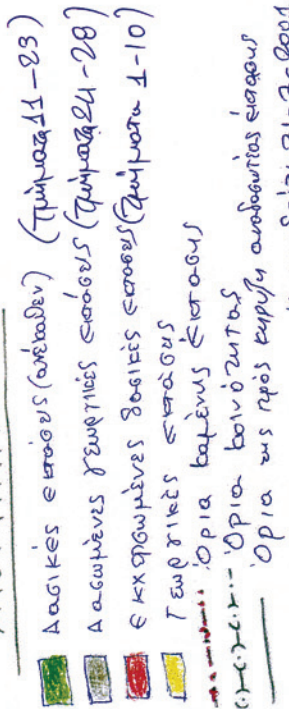 Δασικές εκτάσεις (ανέκαθεν) (Τμήματα 11-23)
Δασωμένες γεωργικές εκτάσεις (Τμήματα 24-28)
εκχερσωμένες δασικές εκτάσεις (Τμήματα 1-10)
Γεωργικές εκτάσεις
Όρια καμένης έκτασης
Όρια κοινότητας
Όρια της προς κήρυξη αναδασωτέας έκτασης
31-7-2001